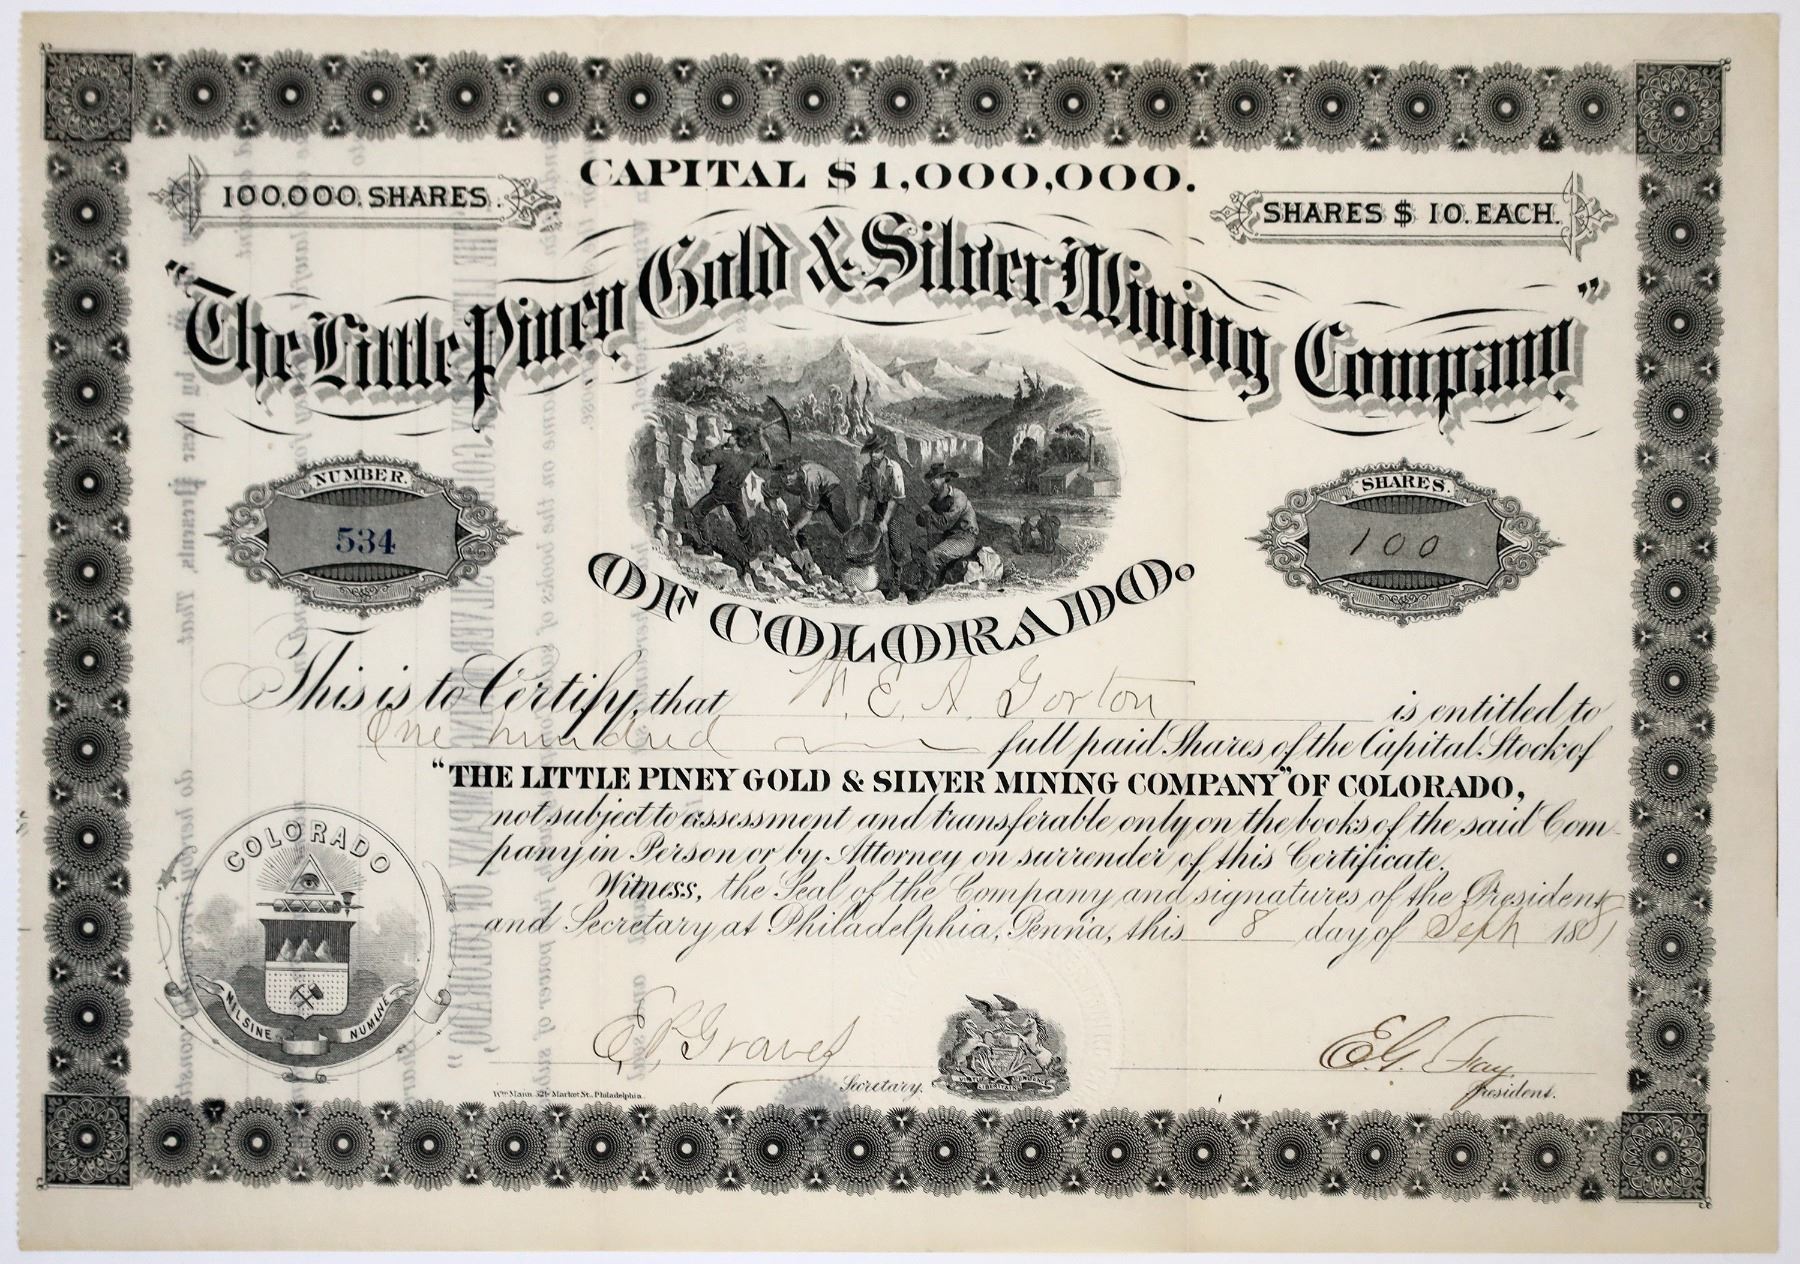 CAPITAL $1,000,000.
100,000. SHARES.
SHARES $ 10. EACH.
"The Little Piney Gold & Silver Mining Company"
OF COLORADO.
NUMBER.
534
SHARES.
100
This is to Certify, that W. E. A. Gorton is entitled to
One hundred full paid Shares of the Capital Stock of
"THE LITTLE PINEY GOLD & SILVER MINING COMPANY" OF COLORADO,
not subject to assessment and transferable only on the books of the said Com-
pany in Person or by Attorney on surrender of this Certificate.
Witness, the Seal of the Company and signatures of the President
and Secretary at Philadelphia, Penn'a, this 8 day of Sept 1881
COLORADO
NIL SINE NUMINE
E. P. Graves
Secretary.
E. G. Fay.
President.
Wm. Mann. 529 Market St., Philadelphia.